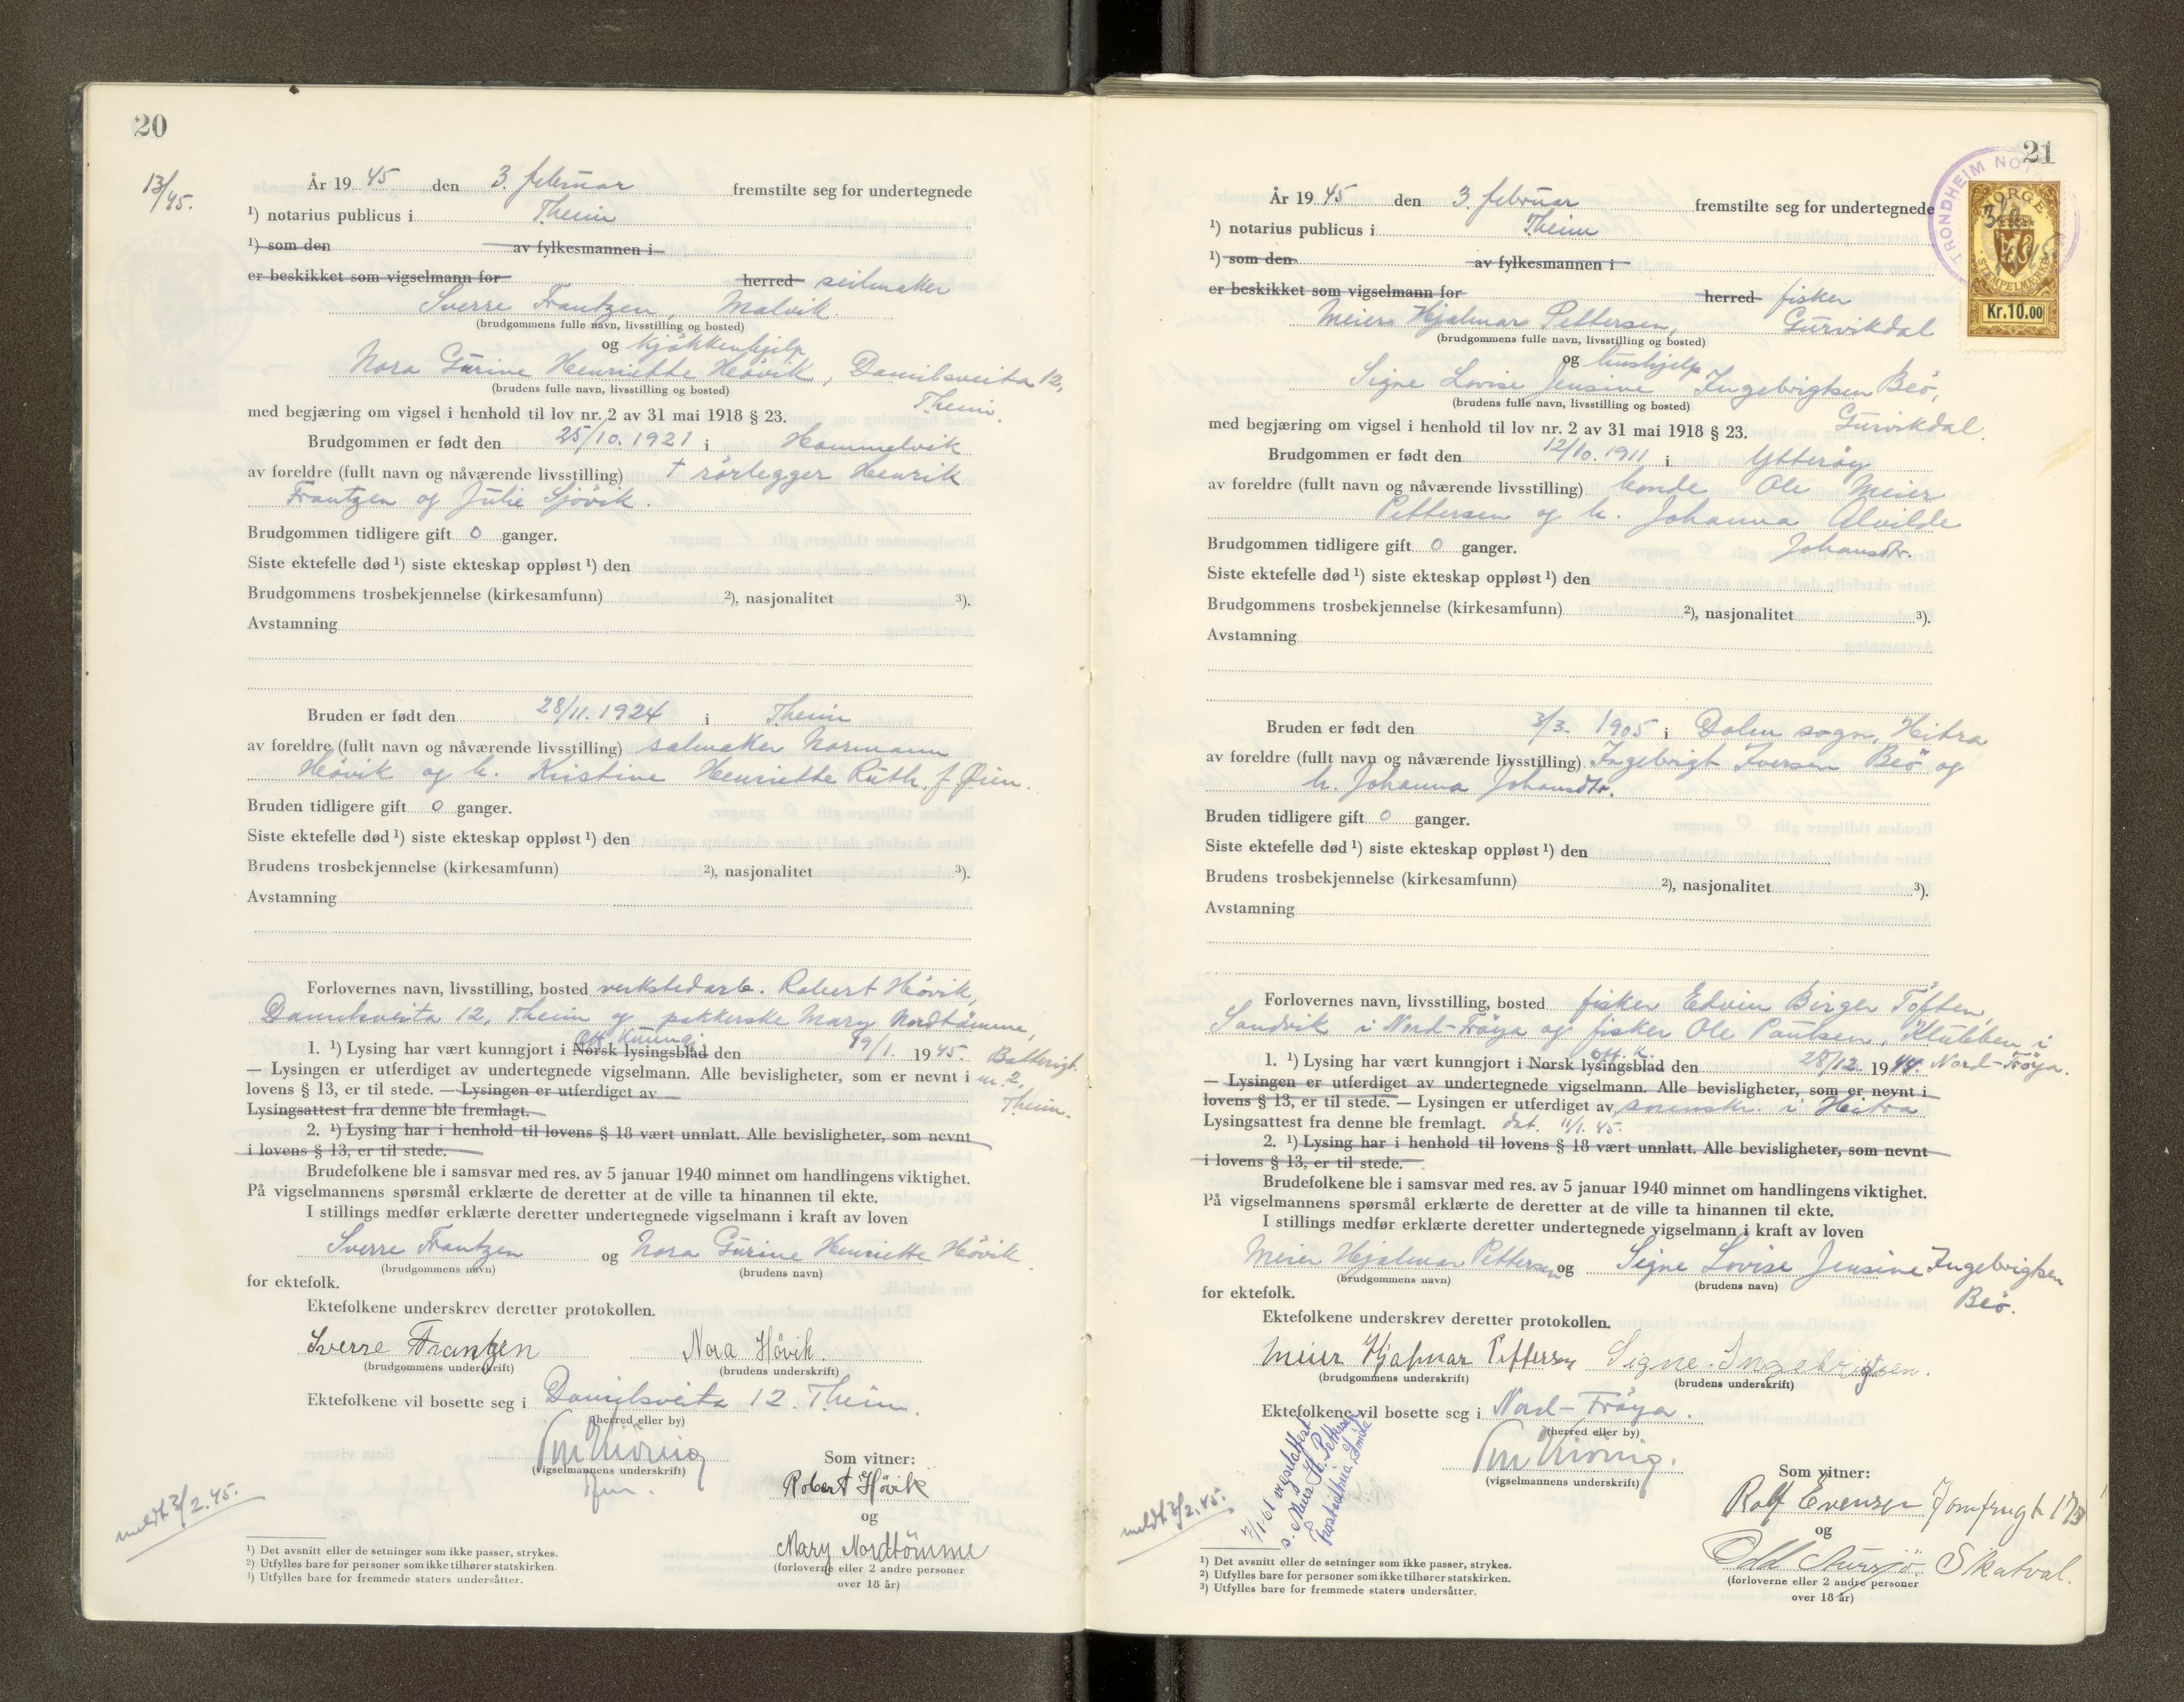 20
13/45.
År 19 45 den 3. februar fremstilte seg for undertegnede
¹) notarius publicus i Theim
¹) som den av fylkesmannen i
er beskikket som vigselmann for herred seilmaker
Sverre Frantzen, Malvik.
(brudgommens fulle navn, livsstilling og bosted)
og kjökkenhjelp
Nora Gurine Henriette Hövik, Danilsveita 12,
(brudens fulle navn, livsstilling og bosted)
Theim.
med begjæring om vigsel i henhold til lov nr. 2 av 31 mai 1918 § 23.
Brudgommen er født den 25/10. 1921 i Hommelvik
av foreldre (fullt navn og nåværende livsstilling) † rörlegger Henrik
Frantzen og Julie Sjövik.
Brudgommen tidligere gift 0 ganger.
Siste ektefelle død ¹) siste ekteskap oppløst ¹) den
Brudgommens trosbekjennelse (kirkesamfunn) ²), nasjonalitet ³).
Avstamning
Bruden er født den 28/11. 1924 i Theim
av foreldre (fullt navn og nåværende livsstilling) salmaker Normann
Hövik og h. Kristine Henriette Ruth, f. Øien.
Bruden tidligere gift 0 ganger.
Siste ektefelle død ¹) siste ekteskap oppløst ¹) den
Brudens trosbekjennelse (kirkesamfunn) ²), nasjonalitet ³).
Avstamning
Forlovernes navn, livsstilling, bosted verkstedarb. Robert Hövik,
Danilsveita 12, Theim og pakkerske Mary Nordtömme,
Off. kunngj.
1. ¹) Lysing har vært kunngjort i Norsk lysingsblad den 19/1. 1945. Bakkeigt.
— Lysingen er utferdiget av undertegnede vigselmann. Alle bevisligheter, som er nevnt i nr. 2,
lovens § 13, er til stede. — Lysingen er utferdiget av Theim.
Lysingsattest fra denne ble fremlagt.
2. ¹) Lysing har i henhold til lovens § 18 vært unnlatt. Alle bevisligheter, som nevnt
i lovens § 13, er til stede.
Brudefolkene ble i samsvar med res. av 5 januar 1940 minnet om handlingens viktighet.
På vigselmannens spørsmål erklærte de deretter at de ville ta hinannen til ekte.
I stillings medfør erklærte deretter undertegnede vigselmann i kraft av loven
Sverre Frantzen og Nora Gurine Henriette Hövik.
(brudgommens navn) (brudens navn)
for ektefolk.
Ektefolkene underskrev deretter protokollen.
Sverre Frantzen Nora Hövik.
(brudgommens underskrift) (brudens underskrift)
Ektefolkene vil bosette seg i Danilsveita 12. Theim.
(herred eller by)
(vigselmannens underskrift)
Som vitner:
Robert Hövik
og
Mary Nordtömme
(forloverne eller 2 andre personer
over 18 år)
meldt 3/2.45.
¹) Det avsnitt eller de setninger som ikke passer, strykes.
²) Utfylles bare for personer som ikke tilhører statskirken.
³) Utfylles bare for fremmede staters undersåtter.
21
TRONDHEIM NOT
NORGE
STEMPELMERKE
Kr.10.00
År 19 45 den 3. februar fremstilte seg for undertegnede
¹) notarius publicus i Theim
¹) som den av fylkesmannen i
er beskikket som vigselmann for herred fisker
Meier Hjalmar Pettersen, Gurvikdal
(brudgommens fulle navn, livsstilling og bosted)
og hushjelp
Signe Lovise Jensine Ingebrigtsen Beö,
(brudens fulle navn, livsstilling og bosted)
Gurvikdal.
med begjæring om vigsel i henhold til lov nr. 2 av 31 mai 1918 § 23.
Brudgommen er født den 12/10. 1911 i Ytteröy
av foreldre (fullt navn og nåværende livsstilling) bonde Ole Meier
Pettersen og h. Johanna Alvilde
Johansdtr.
Brudgommen tidligere gift 0 ganger.
Siste ektefelle død ¹) siste ekteskap oppløst ¹) den
Brudgommens trosbekjennelse (kirkesamfunn) ²), nasjonalitet ³).
Avstamning
Bruden er født den 3/3. 1905 i Dolm sogn, Hitra
av foreldre (fullt navn og nåværende livsstilling) Ingebrigt Iversen Beö og
h. Johanna Johansdtr.
Bruden tidligere gift 0 ganger.
Siste ektefelle død ¹) siste ekteskap oppløst ¹) den
Brudens trosbekjennelse (kirkesamfunn) ²), nasjonalitet ³).
Avstamning
Forlovernes navn, livsstilling, bosted fisker Edvin Birger Töften,
Sandvik i Nord-Fröya og fisker Ole Paulsen, Klubben i
off. k.
1. ¹) Lysing har vært kunngjort i Norsk lysingsblad den 28/12. 1944. Nord-Fröya.
— Lysingen er utferdiget av undertegnede vigselmann. Alle bevisligheter, som er nevnt i
lovens § 13, er til stede. — Lysingen er utferdiget av sorenskr. i Hitra
Lysingsattest fra denne ble fremlagt. dat. 11/1. 45.
2. ¹) Lysing har i henhold til lovens § 18 vært unnlatt. Alle bevisligheter, som nevnt
i lovens § 13, er til stede.
Brudefolkene ble i samsvar med res. av 5 januar 1940 minnet om handlingens viktighet.
På vigselmannens spørsmål erklærte de deretter at de ville ta hinannen til ekte.
I stillings medfør erklærte deretter undertegnede vigselmann i kraft av loven
Meier Hjalmar Pettersen og Signe Lovise Jensine Ingebrigtsen
(brudgommens navn) (brudens navn)
Beö.
for ektefolk.
Ektefolkene underskrev deretter protokollen.
Meier Hjalmar Pettersen Signe Ingebrigtsen.
(brudgommens underskrift) (brudens underskrift)
Ektefolkene vil bosette seg i Nord-Fröya.
(herred eller by)
(vigselmannens underskrift)
Som vitner:
Rolf Evensen Jomfrugt 17
og
Odd Skatval.
(forloverne eller 2 andre personer
over 18 år)
meldt 3/2.45.
7/1-61 vigselattest
s. Meier H. Pettersen
¹) Det avsnitt eller de setninger som ikke passer, strykes.
²) Utfylles bare for personer som ikke tilhører statskirken.
³) Utfylles bare for fremmede staters undersåtter.